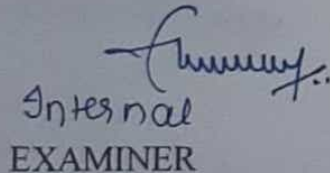 Internal
EXAMINER